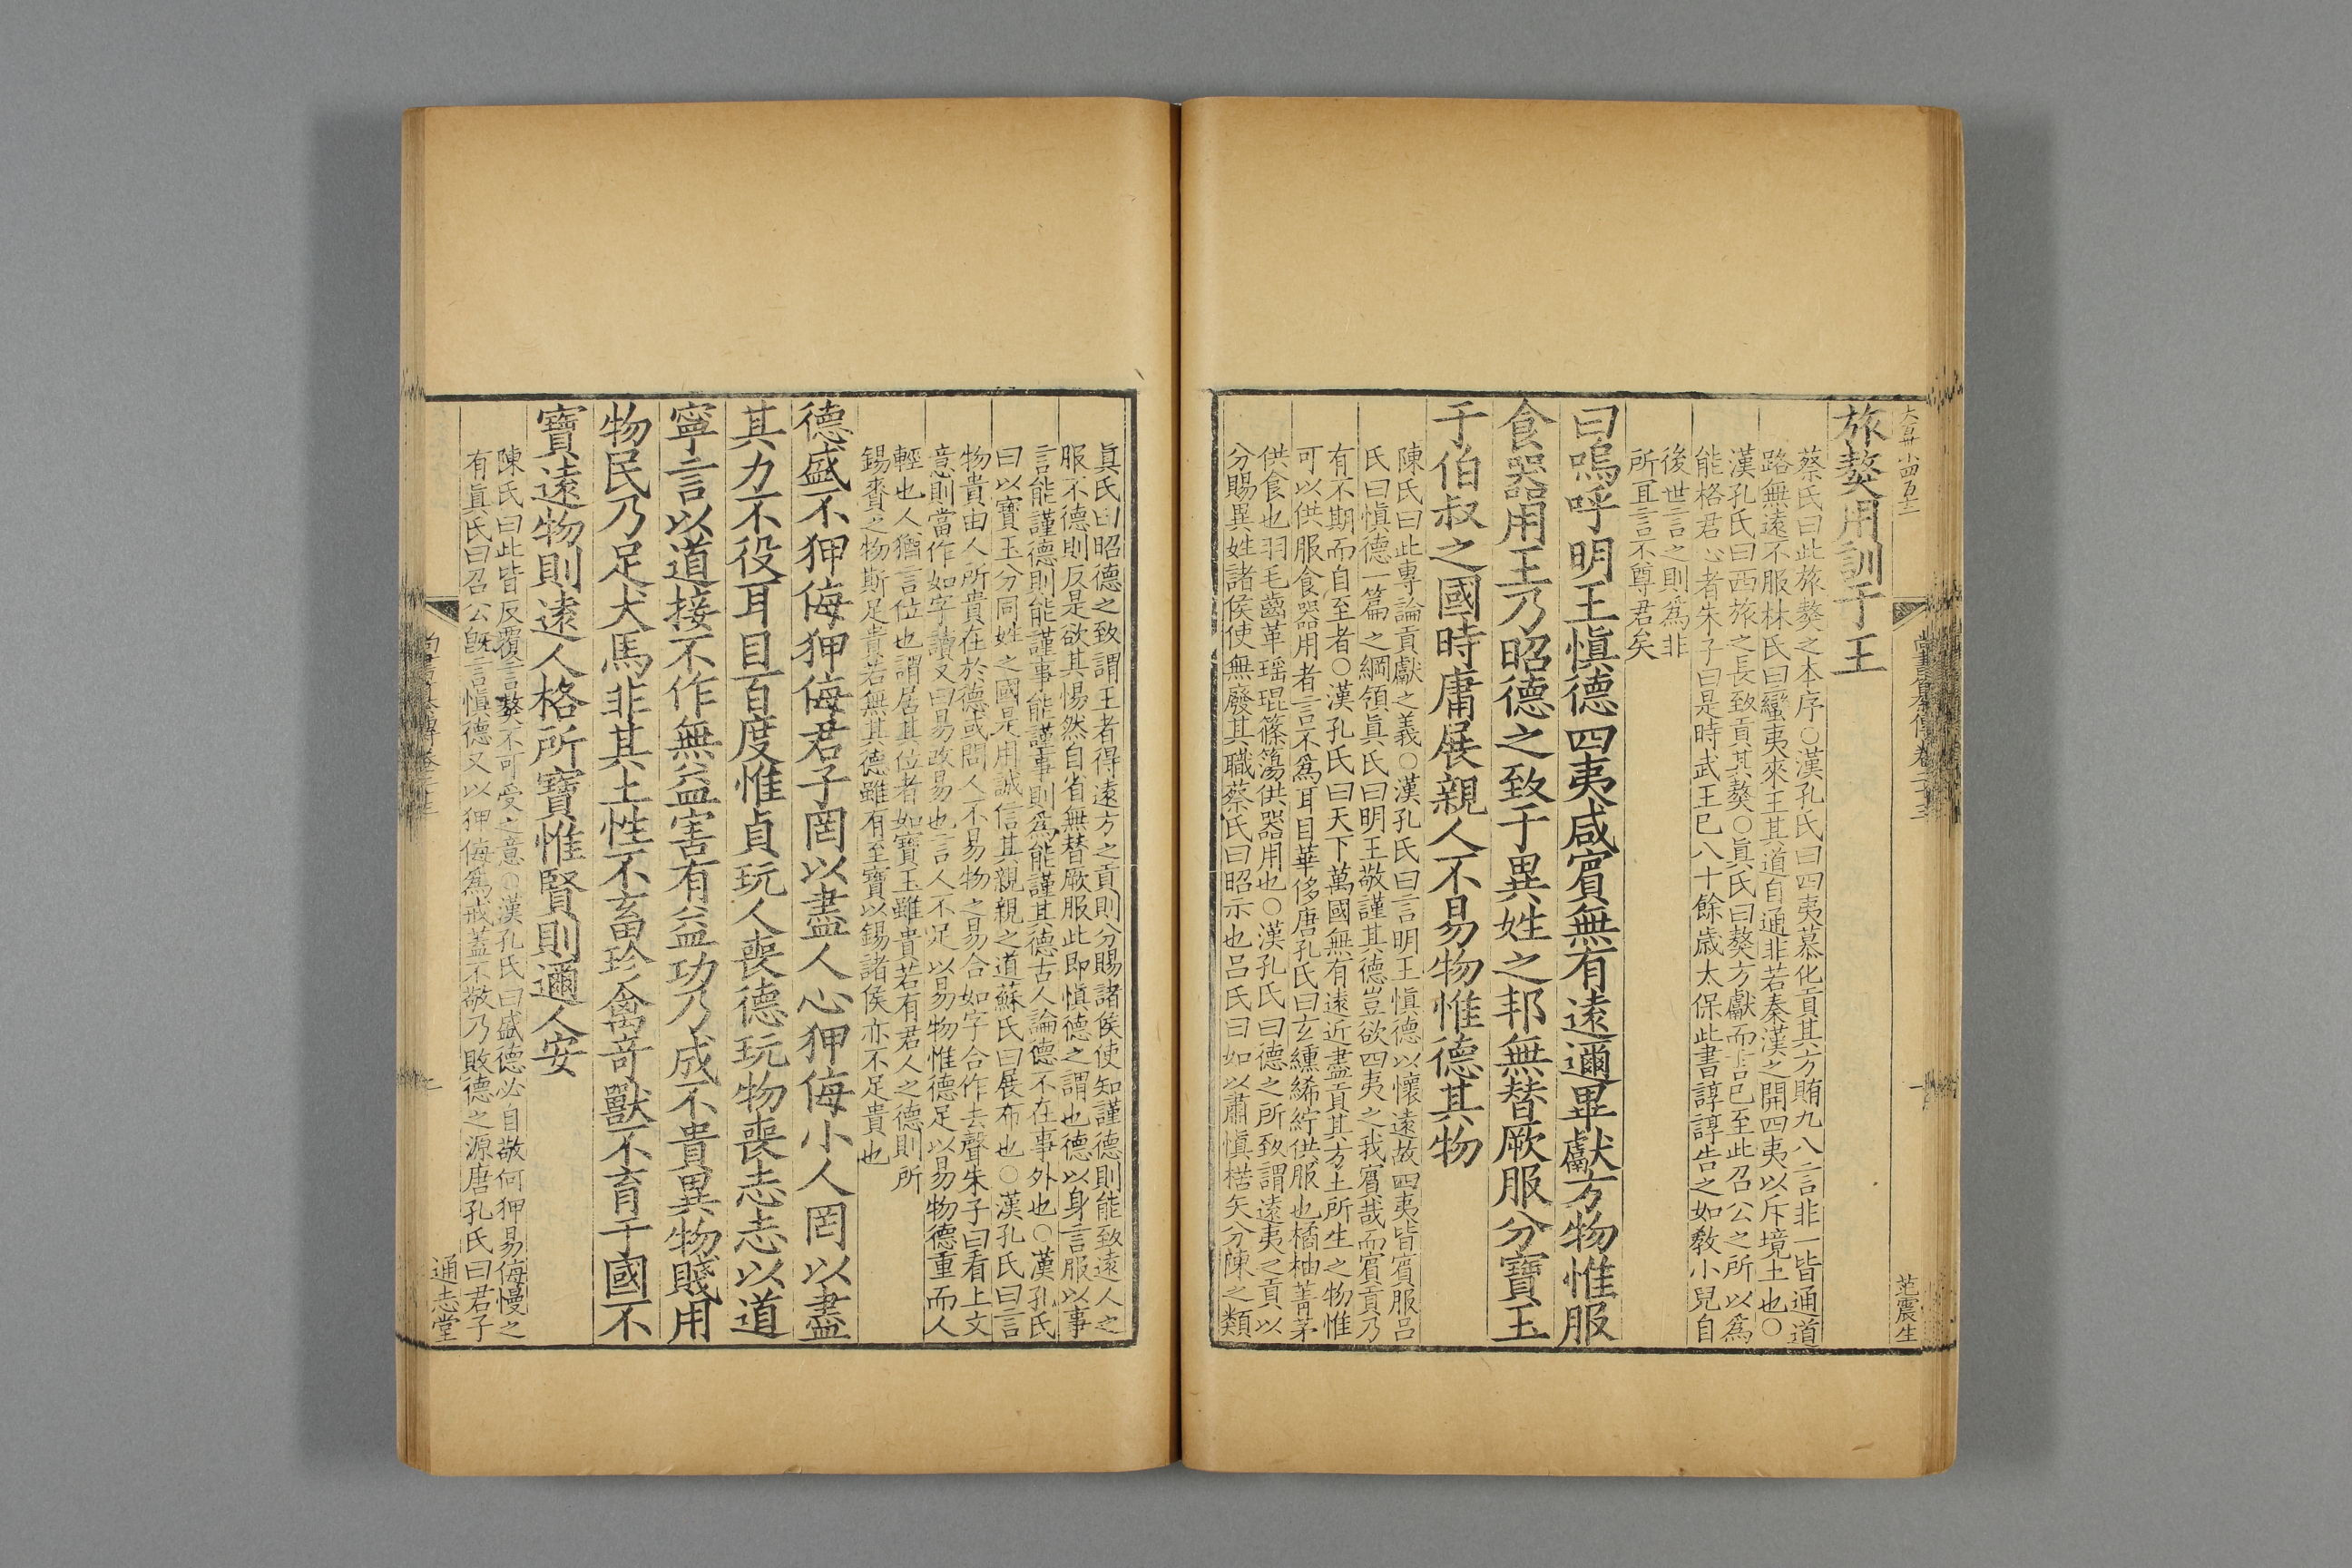 旅獒用訓于王
蔡氏曰此旅獒之本序○漢孔氏曰四夷慕化貢其方賄九八言非一皆通道
路無遠不服林氏曰蠻夷來王其道自通非若秦漢之開四夷以斥境土也○
漢孔氏曰西旅之長致貢其獒○眞氏曰獒方獻而言已至此召公之所以爲
能格君心者朱子曰是時武王已八十餘歲太保此書諄諄告之如敎小兒自
後世言之則爲非
所宜言不尊君矣
曰嗚呼明王愼德四夷咸賓無有遠邇畢獻方物惟服
食器用王乃昭德之致于異姓之邦無替厥服分寶玉
于伯叔之國時庸展親人不易物惟德其物
陳氏曰此專論貢獻之義○漢孔氏曰言明王愼德以懷遠故四夷皆賓服呂
氏曰愼德一篇之綱領眞氏曰明王敬謹其德豈欲四夷之我賓哉而賓貢乃
有不期而自至者○漢孔氏曰天下萬國無有遠近盡貢其方土所生之物惟
可以供服食器用者言不爲耳目華侈唐孔氏曰玄纁絺紵供服也橘柚菁茅
供食也羽毛齒革瑶琨篠簜供器用也○漢孔氏曰德之所致謂遠夷之貢以
分賜異姓諸侯使無廢其職蔡氏曰昭示也呂氏曰如以肅愼楛矢分陳之類
范震生
眞氏曰昭德之致謂王者得遠方之貢則分賜諸侯使知謹德則能致遠人之
服不德則反是欲其惕然自省無替厥服此即愼德之謂也德以身言服以事
言能謹德則能謹事能謹事則爲能謹其德古人論德不在事外也○漢孔氏
曰以寶玉分同姓之國是用誠信其親親之道蘇氏曰展布也○漢孔氏曰言
物貴由人所貴在於德或問人不易物之易合如字合作去聲朱子曰看上文
意則當作如字讀又曰易改易也言人不足以易物惟德足以易物德重而人
輕也人猶言位也謂居其位者如寶玉雖貴若有君人之德則所
錫賚之物斯足貴若無其德雖有至寶以錫諸侯亦不足貴也
德盛不狎侮狎侮君子罔以盡人心狎侮小人罔以盡
其力不役耳目百度惟貞玩人喪德玩物喪志志以道
寧言以道接不作無益害有益功乃成不貴異物賤用
物民乃足犬馬非其土性不畜珍禽奇獸不育于國不
寶遠物則遠人格所寶惟賢則邇人安
陳氏曰此皆反覆言獒不可受之意○漢孔氏曰盛德必自敬何狎易侮慢之
有眞氏曰召公旣言愼德又以狎侮爲戒蓋不敬乃敗德之源唐孔氏曰君子
通志堂